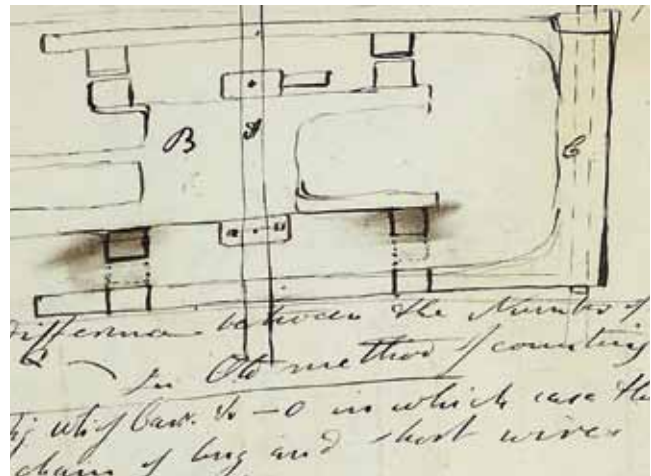 B
A
C
difference between the Number of
In Old method of counting
in which case the
chain of long and short wires